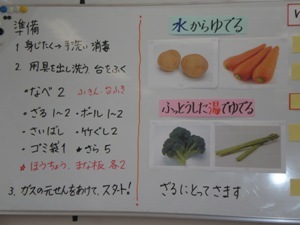 準備
1 身じたく→手洗い 消毒
2. 用具を出し洗う 台をふく
・なべ 2 ふきん・台ふき
・ざる1~2・ボール1~2
・さいばし ・竹ぐし2
・ゴミ袋1 ・さら5
★ほうちょう、まな板 各2
3. ガスの元せんをあけて、スタート!
水からゆでる
ふっとうした湯でゆでる
ざるにとってさます